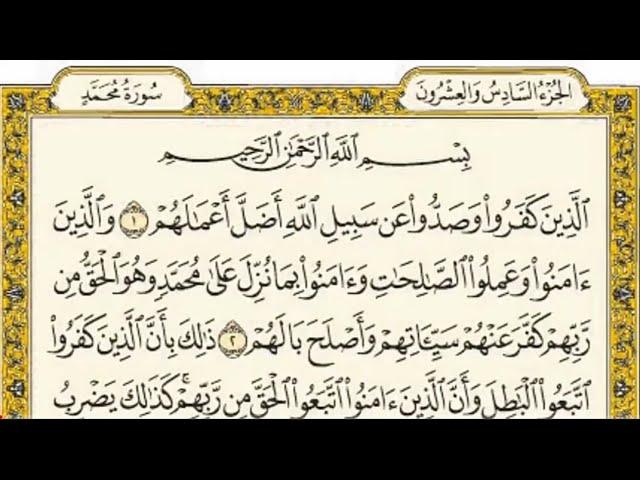 الجُزْءُ السَّادِسُ وَالعِشْرُونَ
سُورَةُ مُحَمَّدٍ
بِسْمِ ٱللَّهِ ٱلرَّحْمَٰنِ ٱلرَّحِيمِ
ٱلَّذِينَ كَفَرُوا۟ وَصَدُّوا۟ عَن سَبِيلِ ٱللَّهِ أَضَلَّ أَعْمَٰلَهُمْ ١ وَٱلَّذِينَ
ءَامَنُوا۟ وَعَمِلُوا۟ ٱلصَّٰلِحَٰتِ وَءَامَنُوا۟ بِمَا نُزِّلَ عَلَىٰ مُحَمَّدٍ وَهُوَ ٱلْحَقُّ مِن
رَّبِّهِمْ كَفَّرَ عَنْهُمْ سَيِّـَٔاتِهِمْ وَأَصْلَحَ بَالَهُمْ ٢ ذَٰلِكَ بِأَنَّ ٱلَّذِينَ كَفَرُوا۟
ٱتَّبَعُوا۟ ٱلْبَٰطِلَ وَأَنَّ ٱلَّذِينَ ءَامَنُوا۟ ٱتَّبَعُوا۟ ٱلْحَقَّ مِن رَّبِّهِمْ ۚ كَذَٰلِكَ يَضْرِبُ